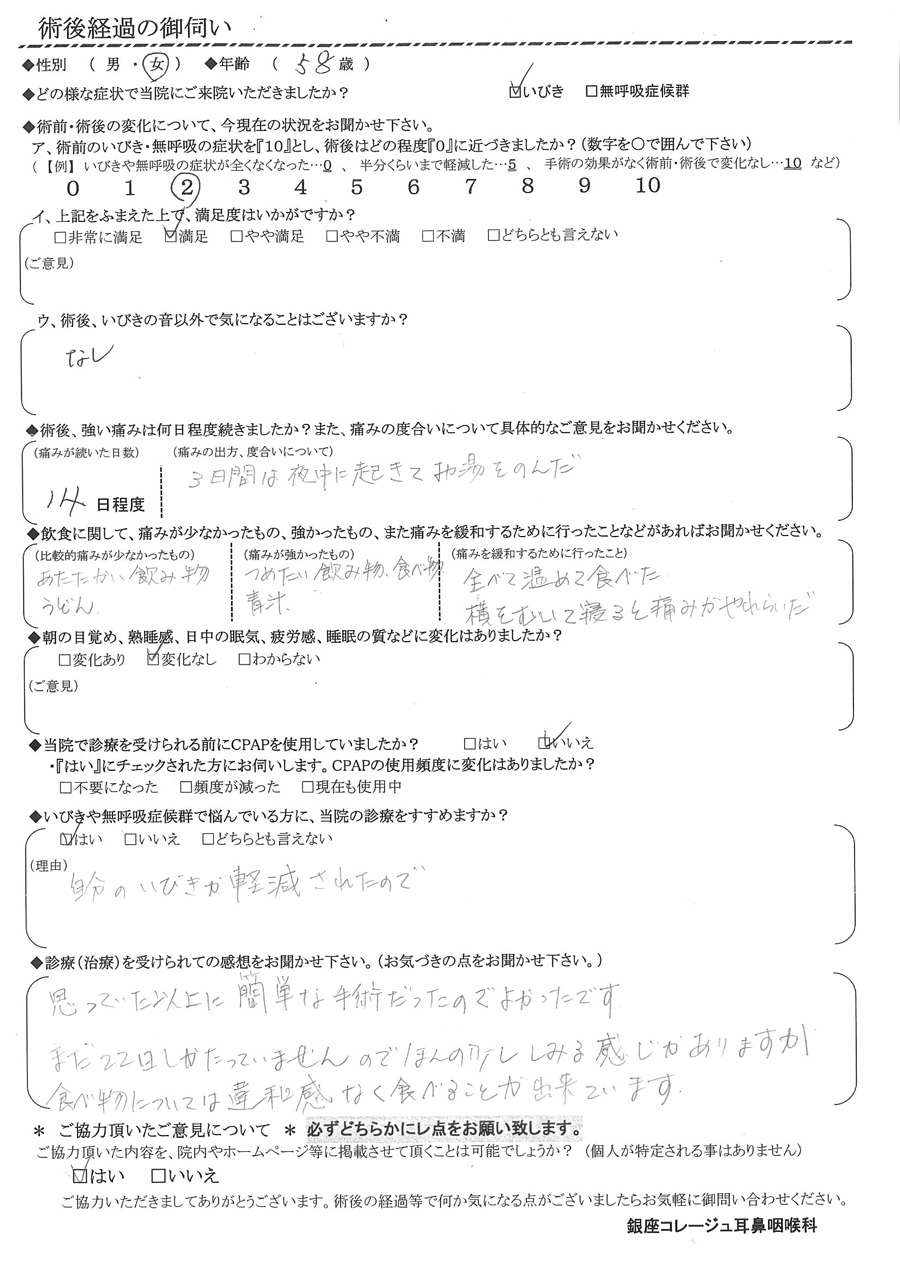 術後経過の御伺い
◆性別 ( 男 ・ 女 ) ◆年齢 ( 58 歳 )
◆どの様な症状で当院にご来院いただきましたか? ☑いびき □無呼吸症候群
◆術前・術後の変化について、今現在の状況をお聞かせ下さい。
ア、術前のいびき・無呼吸の症状を『10』とし、術後はどの程度『0』に近づきましたか?(数字を○で囲んで下さい)
(【例】 いびきや無呼吸の症状が全くなくなった…0 、 半分くらいまで軽減した…5 、 手術の効果がなく術前・術後で変化なし…10 など)
0 1 2 3 4 5 6 7 8 9 10
イ、上記をふまえた上で、満足度はいかがですか?
□非常に満足 ☑満足 □やや満足 □やや不満 □不満 □どちらとも言えない
(ご意見)
ウ、術後、いびきの音以外で気になることはございますか?
なし
◆術後、強い痛みは何日程度続きましたか?また、痛みの度合いについて具体的なご意見をお聞かせください。
(痛みが続いた日数) (痛みの出方、度合いについて)
3日間は夜中に起きてお湯をのんだ
14 日程度
◆飲食に関して、痛みが少なかったもの、強かったもの、また痛みを緩和するために行ったことなどがあればお聞かせください。
(比較的痛みが少なかったもの) (痛みが強かったもの) (痛みを緩和するために行ったこと)
あたたかい飲み物 つめたい飲み物、食べ物 全べて温めて食べた
うどん 青汁 横をむいて寝ると痛みがやわらいだ
◆朝の目覚め、熟睡感、日中の眠気、疲労感、睡眠の質などに変化はありましたか?
□変化あり ☑変化なし □わからない
(ご意見)
◆当院で診療を受けられる前にCPAPを使用していましたか? □はい ☑いいえ
・『はい』にチェックされた方にお伺いします。CPAPの使用頻度に変化はありましたか?
□不要になった □頻度が減った □現在も使用中
◆いびきや無呼吸症候群で悩んでいる方に、当院の診療をすすめますか?
☑はい □いいえ □どちらとも言えない
(理由)
自分のいびきが軽減されたので
◆診療(治療)を受けられての感想をお聞かせ下さい。(お気づきの点をお聞かせ下さい。)
思っていた以上に簡単な手術だったのでよかったです
まだ22日しかたっていませんのでほんの少ししみる感じがありますが
食べ物については違和感なく食べることが出来ています.
* ご協力頂いたご意見について * 必ずどちらかにレ点をお願い致します。
ご協力頂いた内容を、院内やホームページ等に掲載させて頂くことは可能でしょうか? (個人が特定される事はありません)
☑はい □いいえ
ご協力いただきましてありがとうございます。術後の経過等で何か気になる点がございましたらお気軽に御問い合わせください。
銀座コレージュ耳鼻咽喉科